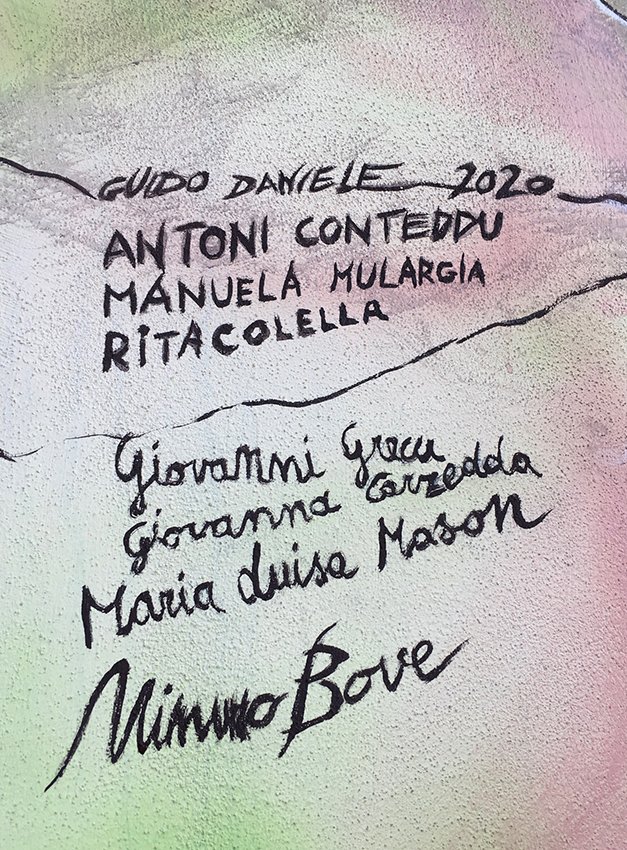 GUIDO DANIELE 2020
ANTONI CONTEDDU
MANUELA MULARGIA
RITA COLELLA
Giovanni Grecu
Giovanna Carzedda
Maria Luisa Mason
Mimmo Bove